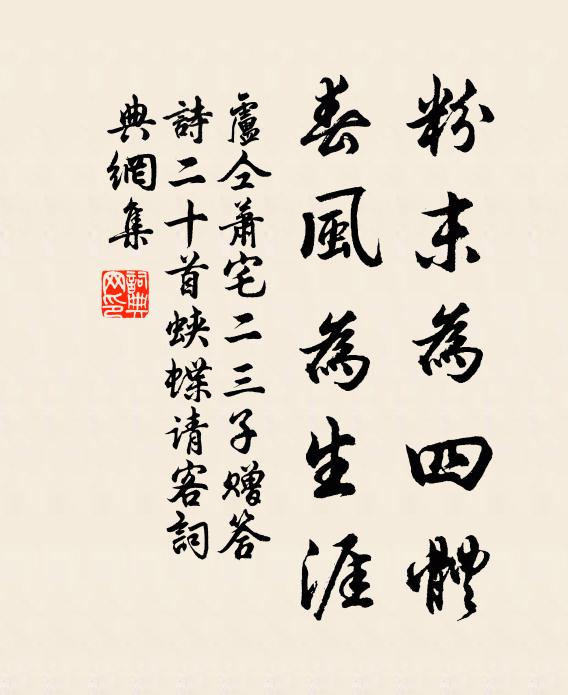 粉末為四體
春風為生涯
盧仝蕭宅二三子赠答
詩二十首蛱蝶请客詞
典網集
詞典
网印